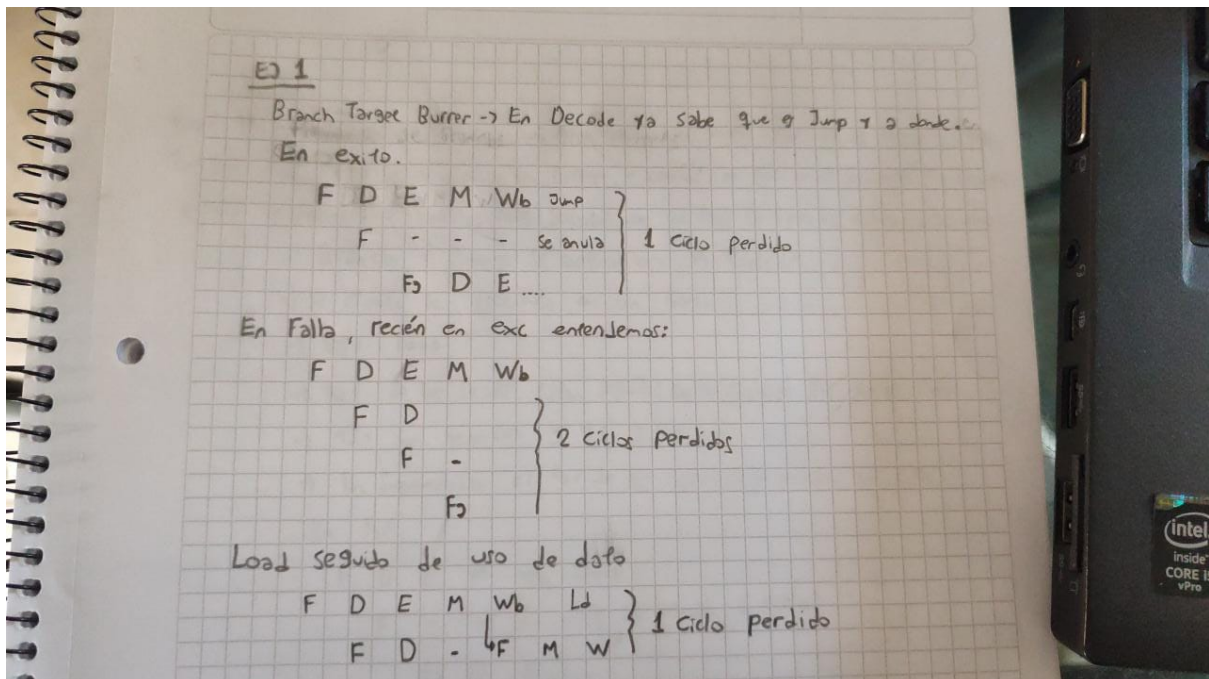 EJ 1
Branch Target Buffer -> En Decode ya sabe que es Jump y a donde.
En exito.
F D E M Wb Jump
F - - - se anula } 1 Ciclo perdido
FJ D E ....
En Falla, recién en exc entendemos:
F D E M Wb
F D
F - } 2 Ciclos perdidos
FJ
Load seguido de uso de dato
F D E M Wb Ld
F D - ↳F M W } 1 Ciclo perdido
intel
inside™
CORE i5
vPro